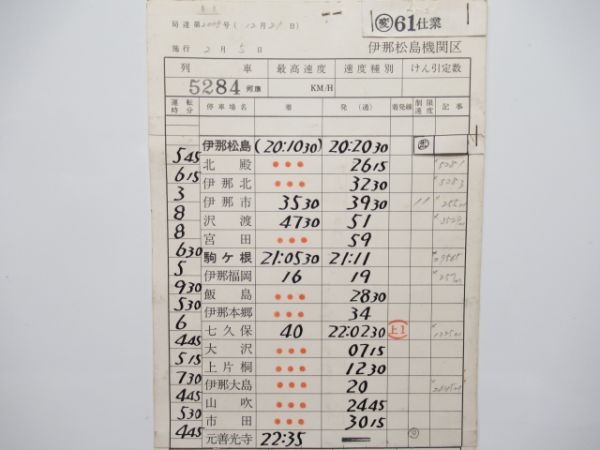 局達第2009号(12月21日)
㊇61仕業
施行 2月5日
伊那松島機関区
列車 最高速度 速度種別 けん引定数
5284 KM/H
運転時分 停車場名 着 発(通) 着発線 制限速度 記事
伊那松島 (20:1030) 20:2030
545 北殿 ・・・ 2615
615 伊那北 ・・・ 3230
3 伊那市 3530 3930 11
8 沢渡 4730 51
8 宮田 ・・・ 59
630 駒ケ根 21:0530 21:11
5 伊那福岡 16 19
930 飯島 ・・・ 2830
530 伊那本郷 ・・・ 34
6 七久保 40 22:0230 上1
445 大沢 ・・・ 0715
515 上片桐 ・・・ 1230
730 伊那大島 ・・・ 20
445 山吹 ・・・ 2445
530 市田 ・・・ 3015
445 元善光寺 22:35